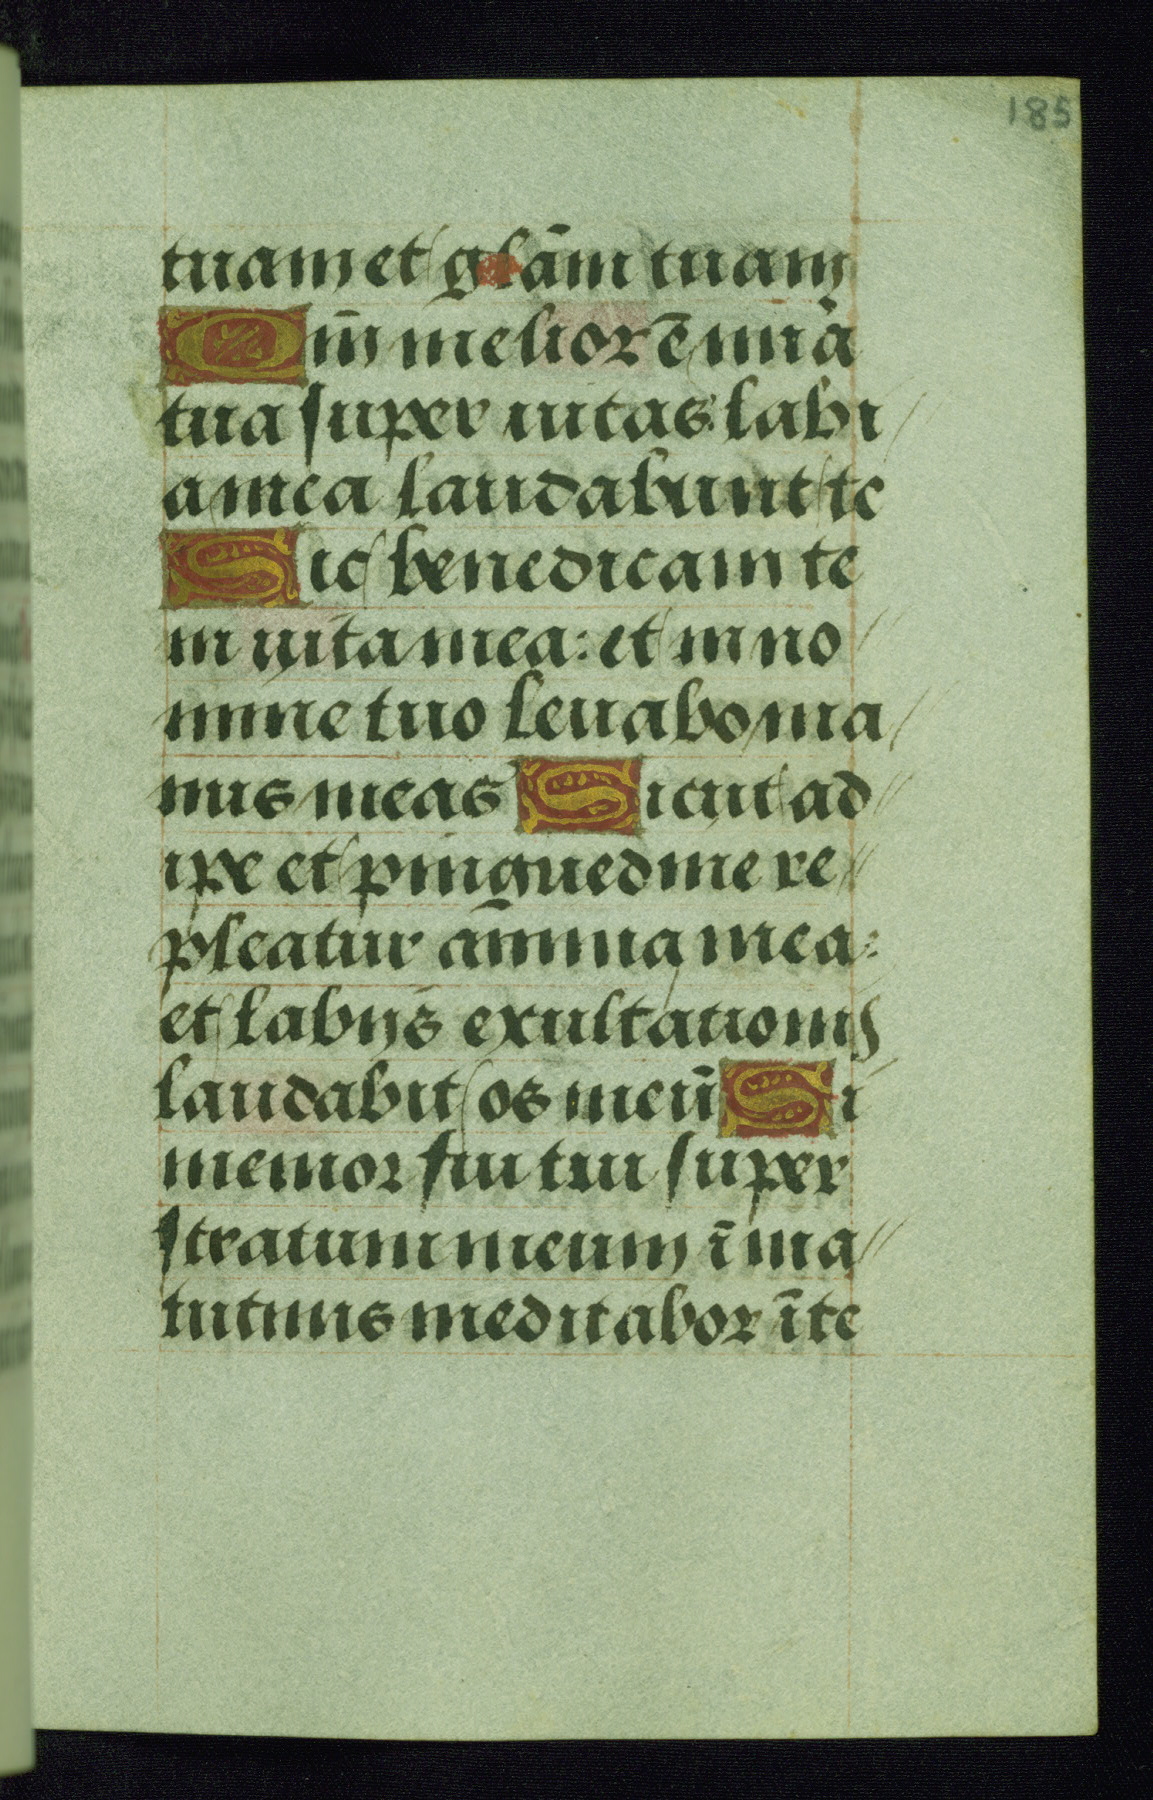 185
tuam et gl̄am tuam
Qm̄ melior ē mīa
tua super uitas labi
a mea laudabunt te
Sic benedicam te
in uita mea: et in no
mine tuo leuabo ma
nus meas Sicut ad
ipe et pinguedine re
pleatur anima mea:
et labijs exultationis
laudabit os meū Si
memor fui tui super
stratum meum ī ma
tutinis meditabor ī te